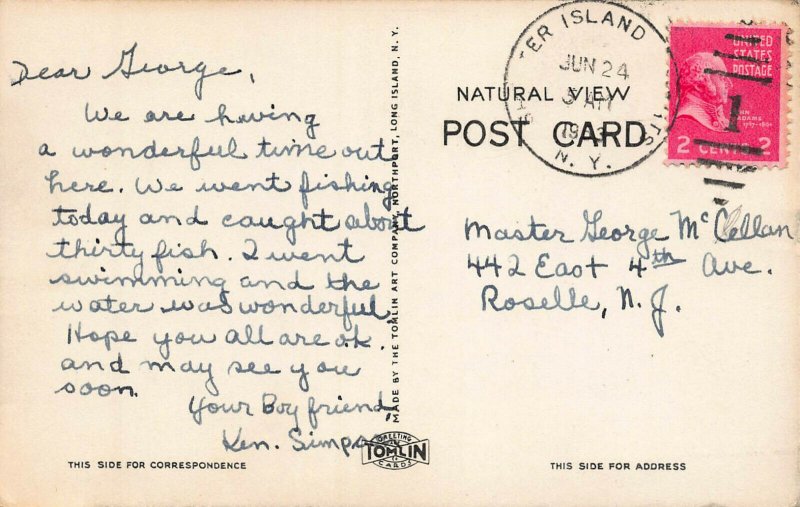 Dear George,
We are having
a wonderful time out
here. We went fishing
today and caught about
thirty fish. I went
swimming and the
water was wonderful,
Hope you all are o.k.
and may see you
soon.
Your Boy friend,
Ken. Simps
THIS SIDE FOR CORRESPONDENCE
GREETING
TOMLIN
CARDS
MADE BY THE TOMLIN ART COMPANY, NORTHPORT, LONG ISLAND, N. Y.
NATURAL VIEW
POST CARD
TER ISLAND
JUN 24
AM
N. Y.
UNITED
STATES
POSTAGE
ADAMS
1797-1801
2 CENTS 2
1
Master George McClellan
442 East 4th Ave.
Roselle, N. J.
THIS SIDE FOR ADDRESS